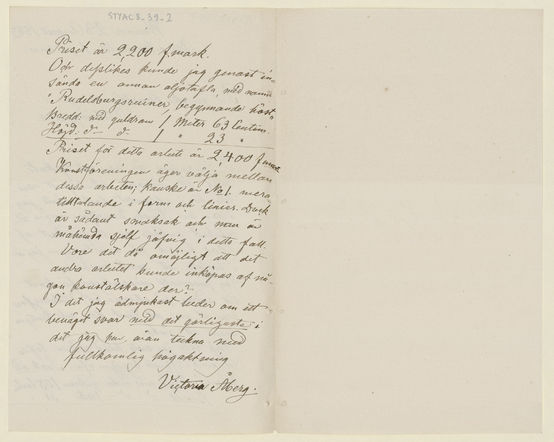 STYAC8-39-2
Priset är 2,200 fmark.
Och desslikes kunde jag genast in-
sända en annan oljetafla, med namn
"Rudelsburgsruiner begynnande höst"
Bredd: med guldram 1 Meter 63 Centim.
Höjd. d:o d:o 1 " 23 "
Priset för detta arbete är 2,400 fmark
Konstföreningen äger välja mellan
dessa arbeten; kanske är No 1. mera
tilltalande i form och linier. Dock
är sådant smaksak och man är
måhända sjelf jäfvig i detta fall.
Vore det då omöjligt att det
andra arbetet kunde inköpas af nå-
gon konstälskare der?
I det jag ödmjukast beder om ett
benäget svar med det görligaste i
det jag har äran teckna med
fullkomlig högaktning
Victoria Åberg.